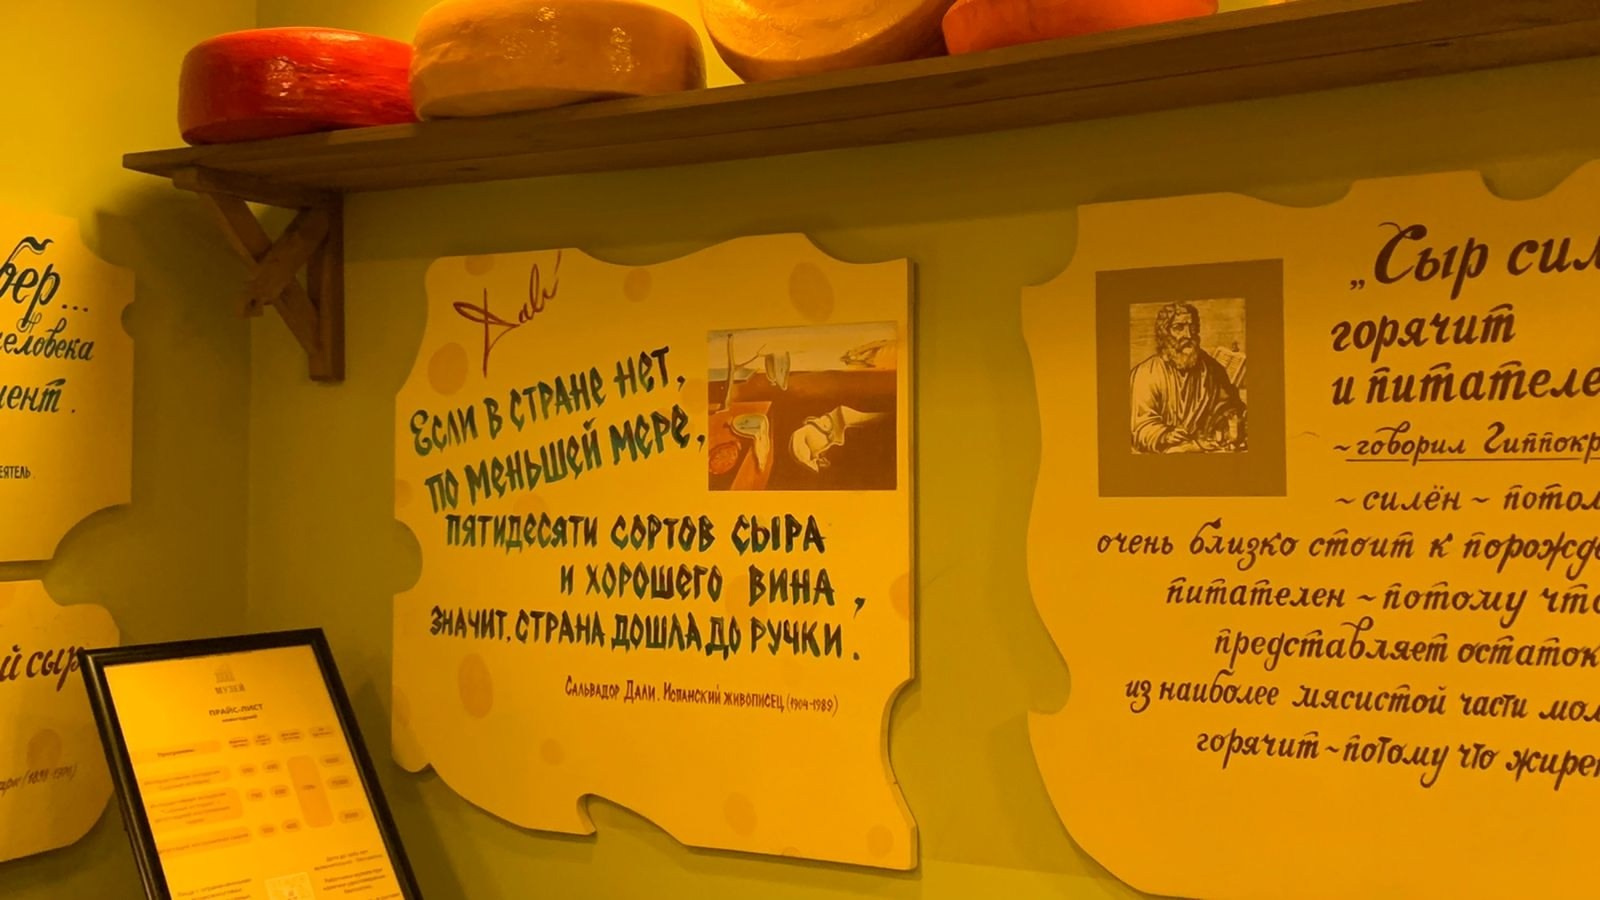 бер...
человека
мент.
еятель.
й сыр
Dalí
Если в стране нет,
по меньшей мере,
пятидесяти сортов сыра
и хорошего вина,
значит, страна дошла до ручки.
Сальвадор Дали. Испанский живописец (1904-1989)
„Сыр сил
горячит
и питателе
~говорил Гиппокр
~силён~ потом
очень близко стоит к порожде
питателен~потому что
представляет остаток
из наиболее мясистой части мол
горячит~потому что жирен
МУЗЕЙ
ПРАЙС-ЛИСТ